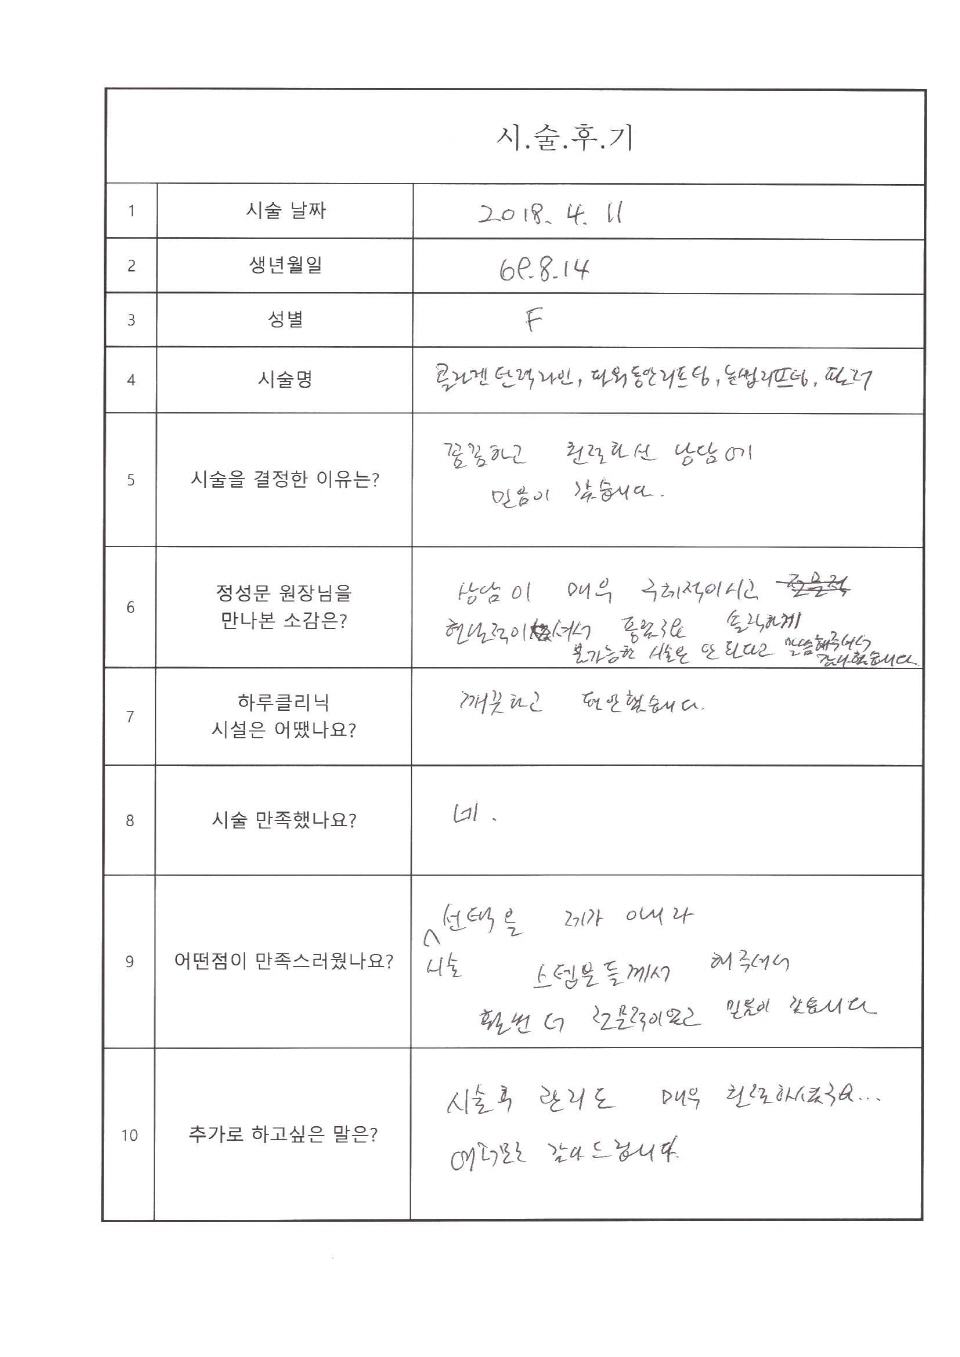 시.술.후.기
1 시술 날짜 2018. 4. 11
2 생년월일 69.8.14
3 성별 F
4 시술명 콜라겐탄력라인, 파워동안리프팅, 눈썹리프팅, 필러
5 시술을 결정한 이유는?
꼼꼼하고 친절하신 상담에
믿음이 갔습니다.
6 정성문 원장님을
만나본 소감은?
상담이 매우 구체적이시고
현실적이셔서 솔직하게
불가능한 시술은 안 된다고 말씀해주셔서
감사했습니다.
7 하루클리닉
시설은 어땠나요?
깨끗하고 편안했습니다.
8 시술 만족했나요?
네.
9 어떤점이 만족스러웠나요?
시술 선택을 제가 아니라
스텝분들께서 해주셔서
훨씬 더 전문적이었고 믿음이 갔습니다
10 추가로 하고싶은 말은?
시술후 관리도 매우 친절하셨구요...
여러모로 감사드립니다.